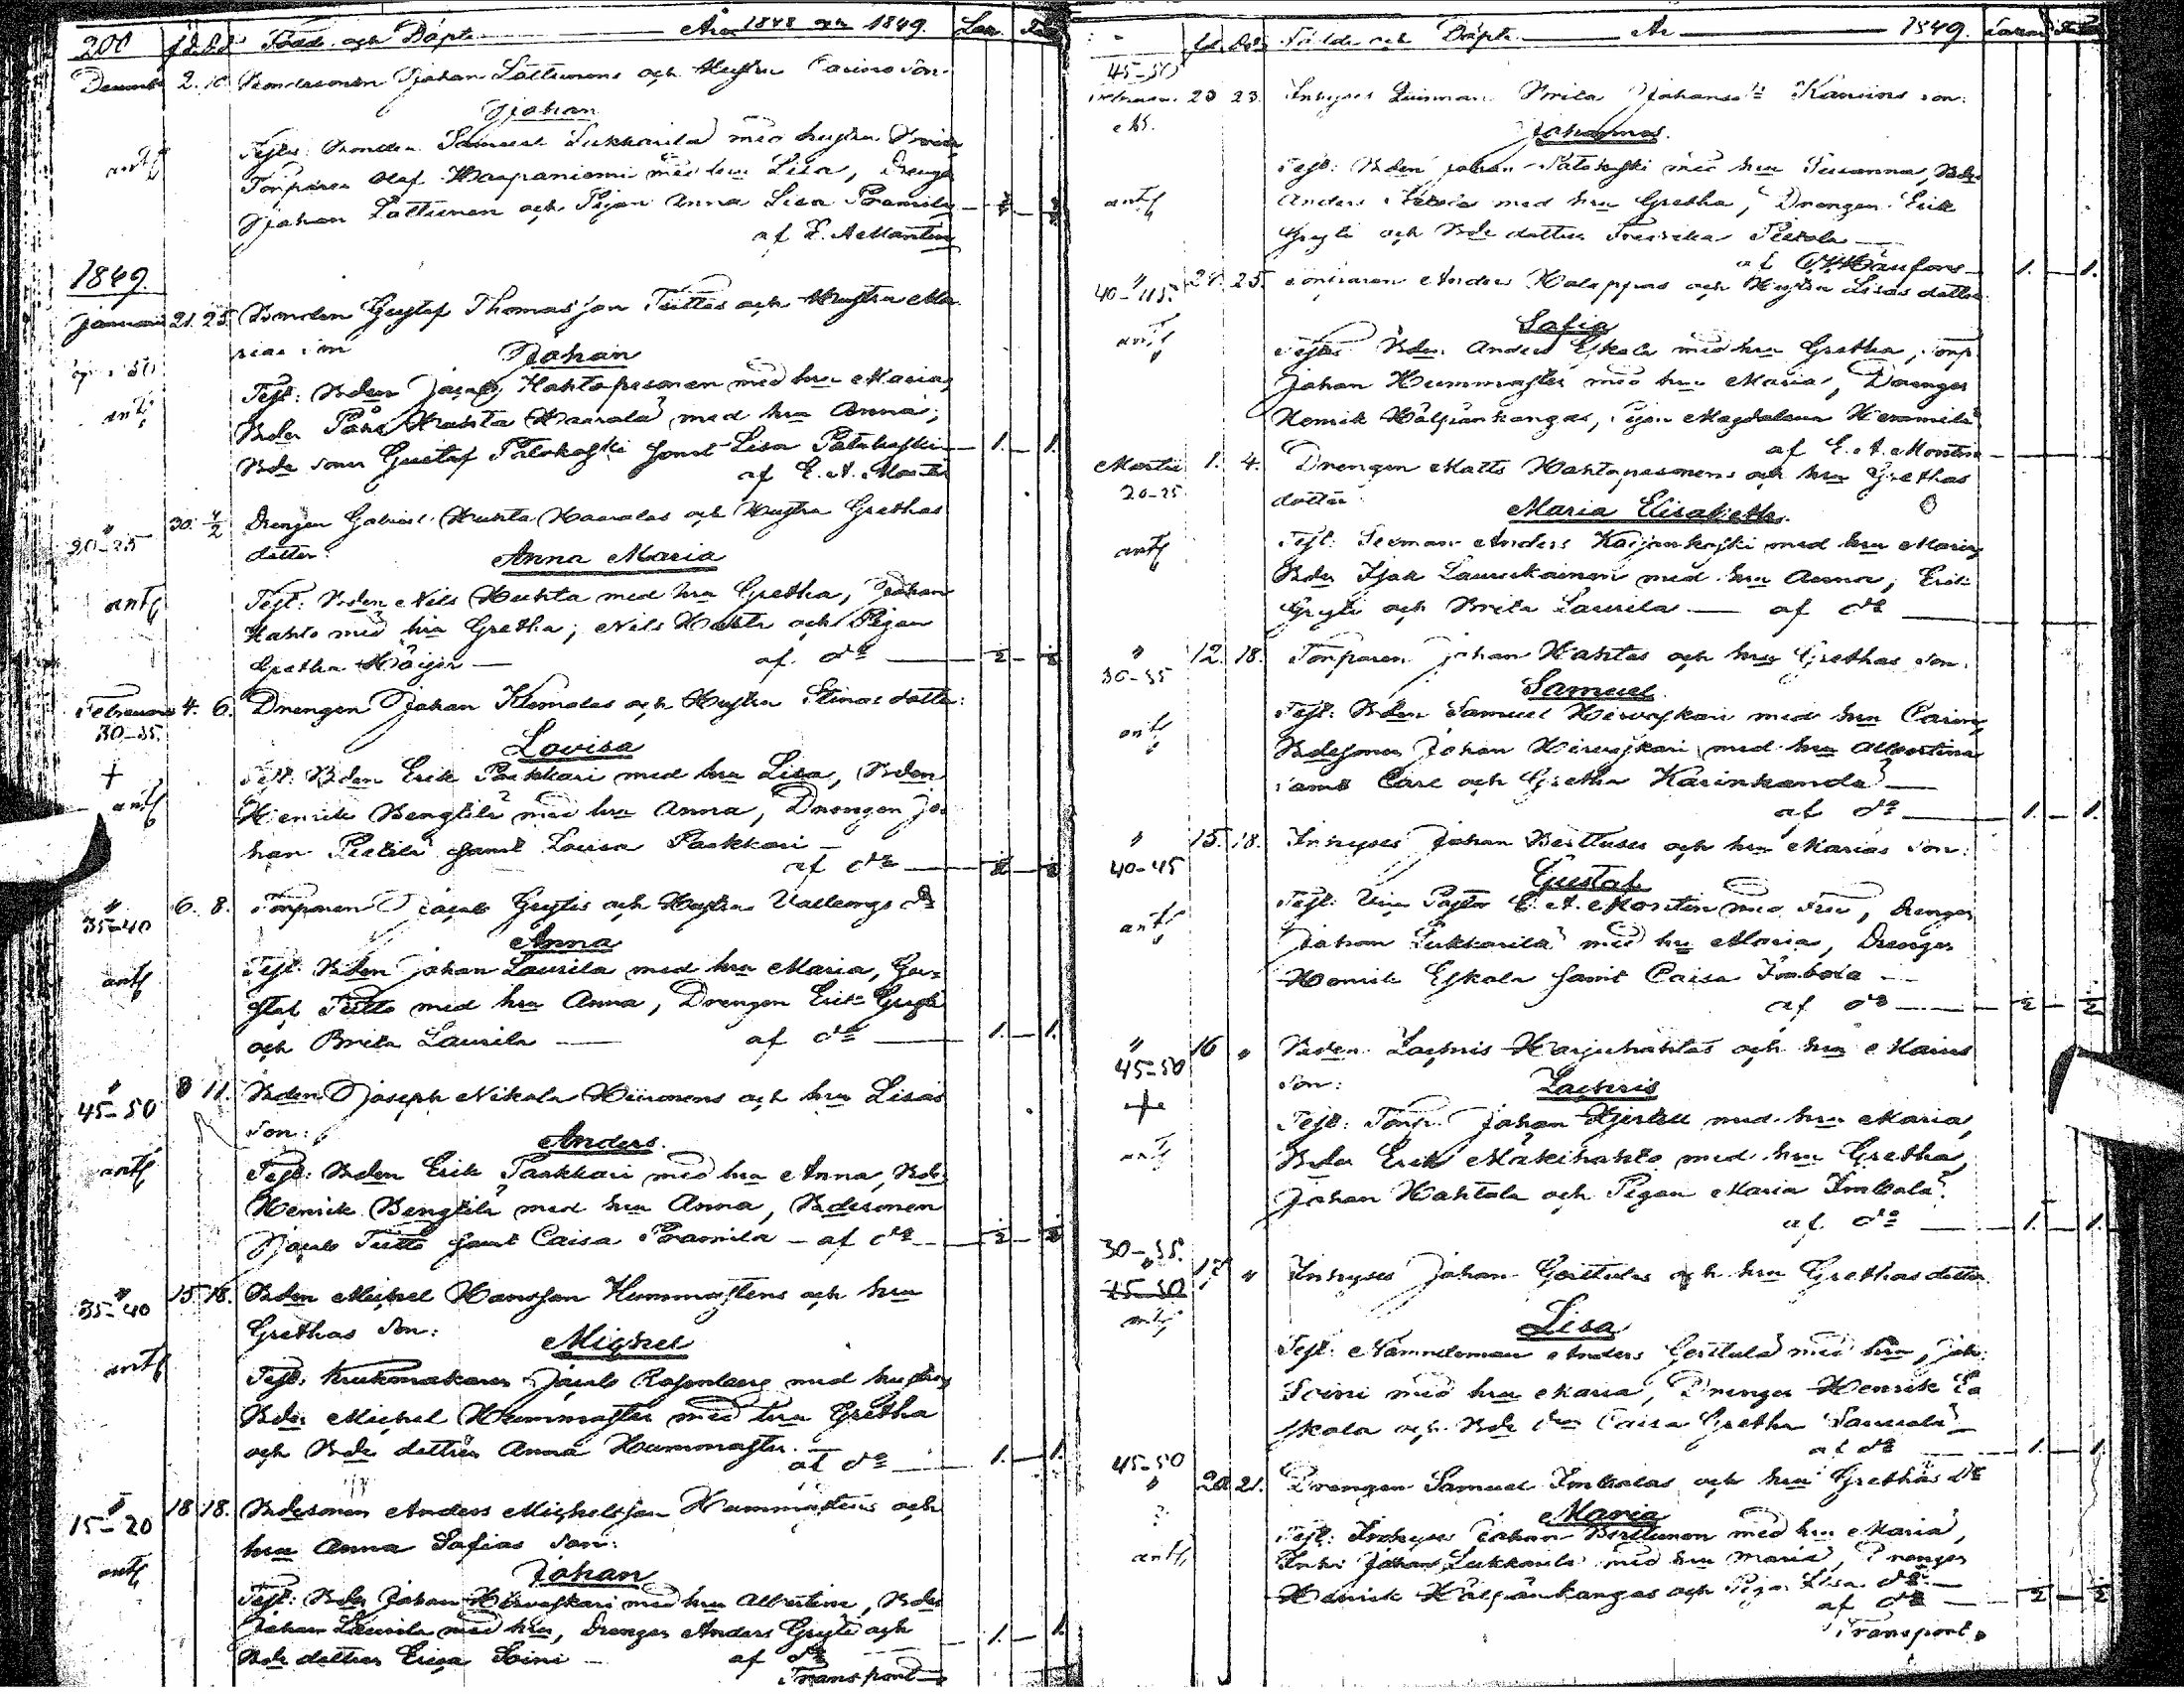 200 Född. och Döpt. Åren 1848 och 1849.
Decembr 2. 10. Bondesonen Johan Lottunens och Hustru Carins son.
Johan
Test: Bonden Samuel Lukkarila med hustru Brita
Torparen Olof Haapaniemi med hru Lisa, Dreng
Johan Lottunen och Pigan Anna Lisa
af E. A. Montin
1849.
Januari 21. 25. Bonden Gustaf Thomasson Tuttos och Hustru Ma
rias son
Johan
antf
Test: Bden Jacob Hahtaperonen med hru Maria,
Bden Påhl Huhta Haarala med hru Anna,
Bde sonen Gustaf Palokoski samt Lisa Palokoski 1. 1.
af E. A. Montin
" 30. 4/2 Drengen Gabriel Huhta Haaralas och Hustru Grethas
20-25 dotter:
Anna Maria
antf Test: Bden Nils Huhta med hru Gretha, Johan
Hahto med hru Gretha; Nils Huhta och Pigan
Gretha Höijer af do 1/2
Februari 4. 6. Drengen Johan Klemolas och Hustru Stinas dotter:
30-35
Lovisa
+ Test: Bden Erik Paakkari med hru Lisa, Bden
antf Henrik Bengtilä med hru Anna, Drengen Jo
han Pietilä samt Lovisa Paakkari
af do
" 6. 8. Torparen Jacob Grytis och Hustru Valborgs dr
35-40
Anna
antf Test: Bden Johan Laurila med hru Maria, Gu=
staf Tutto med hru Anna, Drengen Erik Gryti
och Brita Laurila af do 1. 1.
" 8 11. Bden Joseph Nikola Hiironens och hru Lisas
45-50 son:
Anders.
antf Test: Bden Erik Paakkari med hru Anna, Bde
Henrik Bengtilä med hru Anna, Bdesonen
Jacob Tutto samt Caisa af do 1/2
" 15 18. Bden Michel Hansson Hummastens och hru
35-40 Grethas son:
Michel
antf Test: Krukmakaren Jacob Rosenberg med hustru,
Bden Michel Hummaster med hru Gretha
och Bde dotter Anna Hummaster.
af do 1. 1.
" 18 18. Bdesonen Anders Michelsson Hummastens och
15-20 hru Anna Sofias son:
Johan
antf Test: Bden Johan Hirvaskari med hru Albertina, Bden
Johan Laurila med hru, Drengen Anders Gryti och
Bde dotter Erica Soini af do 1. 1.
Transport
Födde och Döpte År 1849.
45-50
Februari 20 23. Inhyses Qvinnan Brita Johansdr Kaniins son:
Johannes.
antf Test: Bden Johan Palokoski med hru Susanna, Bden
Anders med hru Gretha, Drengen Erik
Gryti och Bde dotter Fredrika Pietola
af 1. 1.
" 24. 25. Torparen Anders Halappas och Hustru Lisas dotter
40-45.
Sofia
antf Testes Bden Anders Eskola med hru Gretha, Torp.
Johan Hummaster med hru Maria, Drengen
Henrik Hälpänkangas, Pigan Magdalena
af E. A. Montin
Martii 1. 4. Drengen Matts Hahtaperonens och hru Grethas
20-25 dotter
Maria Elisabeth.
antf Test: Anders Karjankoski med hru Maria,
Bden Isak Laurukainen med hru Anna, Erik
Gryti och Brita Laurila af do
" 12. 18. Torparen Johan Hahtos och hru Grethas son.
30-35
Samuel
antf Test: Bden Samuel Hirvaskari med hru Carin,
Bdesonen Johan Hirvaskari med hru Albertina
samt Carl och Gretha Karinkanda
af do 1. 1.
" 15. 18. Inhyses Johan Berttuses och hru Marias son:
40-45
Gustaf
antf Test: Vice Pastor E. A. Montin med Fru, Drengen
Johan Lukkarila med hru Maria, Drengen
Henrik Eskola samt Caisa Imbola
af do 1/2 1/2
" 16 " Bden Zachris Harjuhahtos och hru Marias
45-50 son:
Zachris
+ Test: Torp. Johan med hru Maria,
antf Bden Erik Mäkihahto med hru Gretha,
Johan Hahtola och Pigan Maria Imbola.
af do 1. 1.
30-35.
" 17 " Inhyses Johan Gerttulas och hru Grethas dotter
25-30
Lisa
antf Test: Nämndeman Anders Gerttula med hru, Joh.
Soini med hru Maria, Drengen Henrik Es
skola och Bde dr Caisa Gretha
af do 1. 1.
45-50
" 20 21. Drengen Samuel Imbolas och hru Grethas dr
?
Maria
antf Test: Inhyses Johan Berttunen med hru Maria,
Inh: Johan Lukkarila med hru Maria, Drengen
Henrik Hälpänkangas och Pigan Lisa do
af do 1/2 1/2
Transport